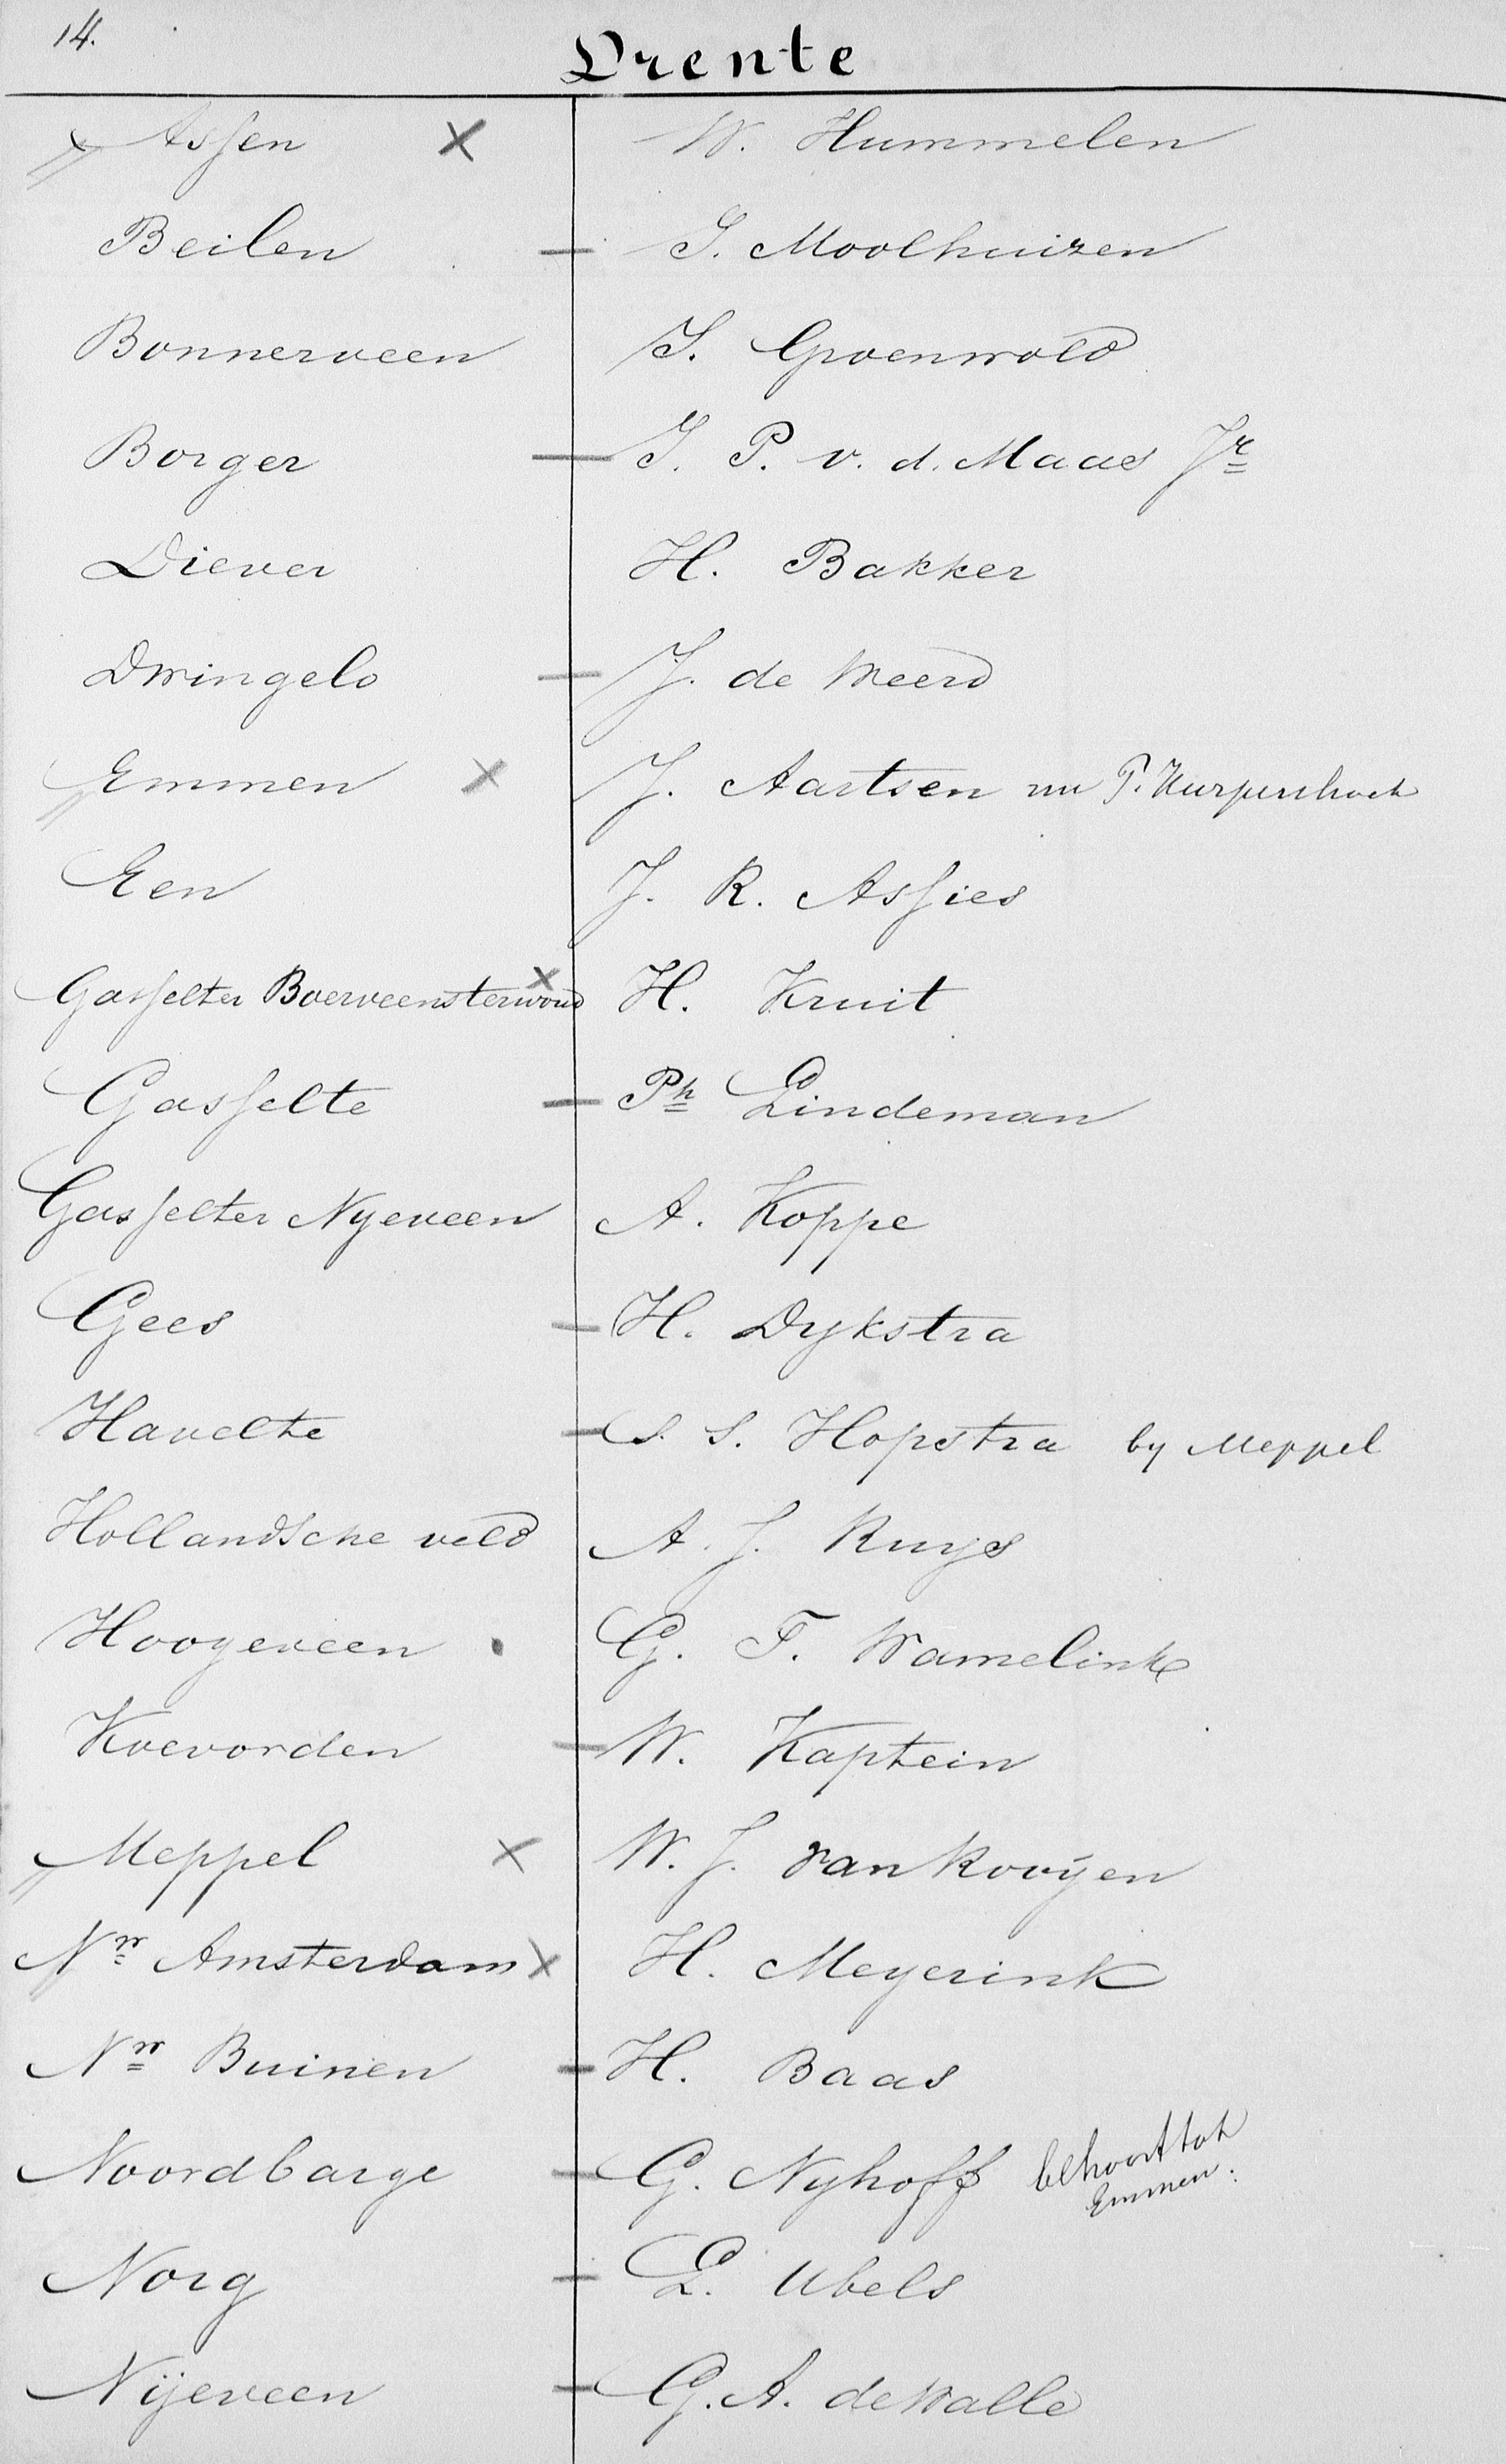 14.
Drente
Assen × W. Hummelen
Beilen — J. Moolhuizen
Bonnerveen J. Groenwold
Borger — J. P. v. d. Maas Jr
Diever H. Bakker
Dwingelo — J. de Weerd
Emmen × J. Aartsen nu P. Kurpershoek
Een J. R. Assies
Gasselter Boerveensterwoud × H. Kruit
Gasselte — Ph Lindeman
Gasselter Nyeveen A. Koppe
Gees — H. Dykstra
Havelte — S. S. Hopstra by Meppel
Hollandsche veld A. J. Ruys
Hoogeveen G. F. Wamelink
Koevorden — W. Kaptein
Meppel × W. J. van Kooyen
Nw Amsterdam × H. Meyerink
Nw Buinen — H. Baas
Noordbarge — G. Nyhoff behoort tot
Emmen.
Norg — L. Ubels
Nijeveen — G. A. de Walle